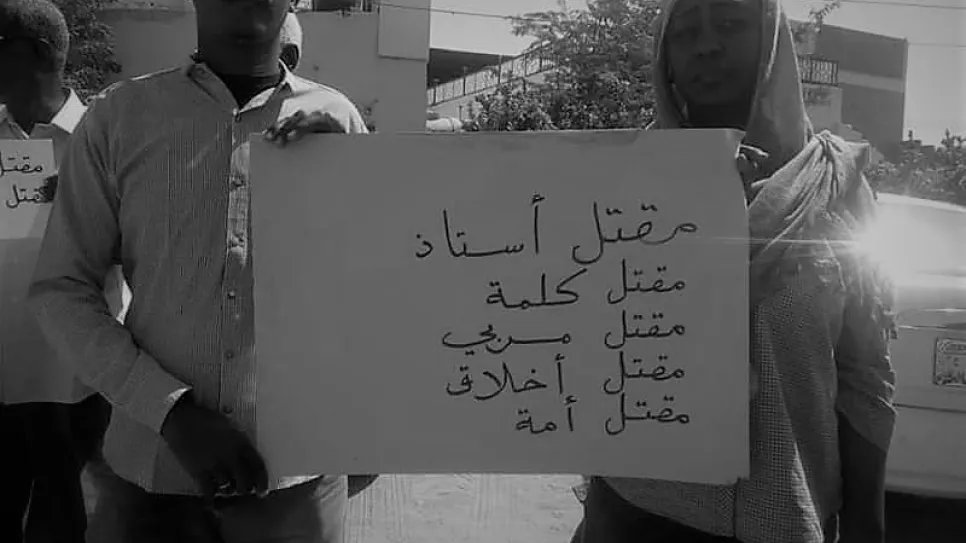 مقتل أستاذ
مقتل كلمة
مقتل مربي
مقتل أخلاق
مقتل أمة
مقتل
مقتل